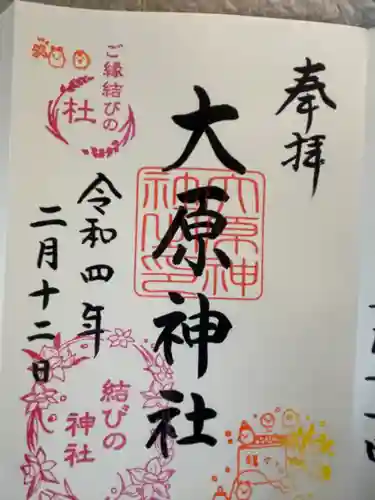 奉拝
大原神社
令和四年
二月十二日
ご縁結びの
杜
結びの
神社